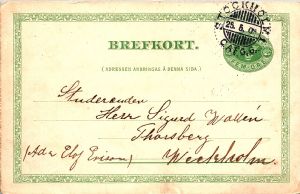 BREFKORT.
(ADRESSEN ANBRINGAS Å DENNA SIDA.)
STOCKHOLM
25. 5. 0
FEM ÖRE
Studeranden
Herr Sigurd Wallén
Thorsberg
(Adr Elof Ersson) Weckholm.